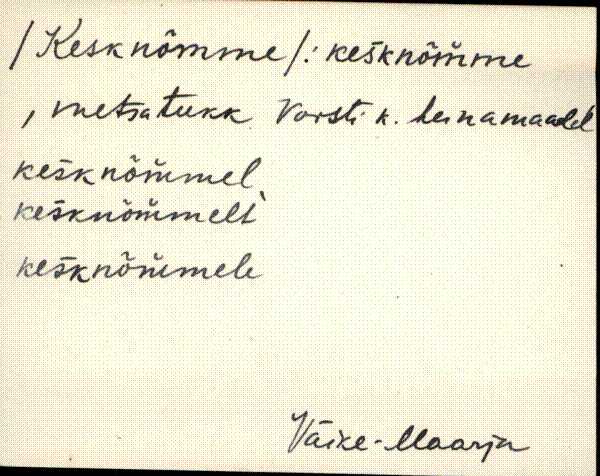 /Kesknõmme/: kes̄knõm̆me
, metsatukk Vorsti k. heinamaadel
kes̄knõm̆mel
kes̄knõm̆melt`
kes̄knõm̆mele
Väike-Maarja